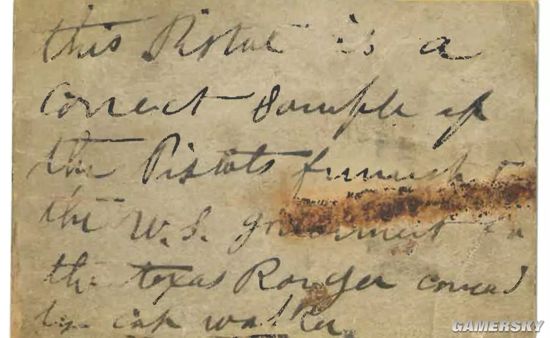 this Pistol is a
correct sample of
the Pistols furnish
the U.S. government
the texas Ranger comad
by cap walker
GAMERSKY